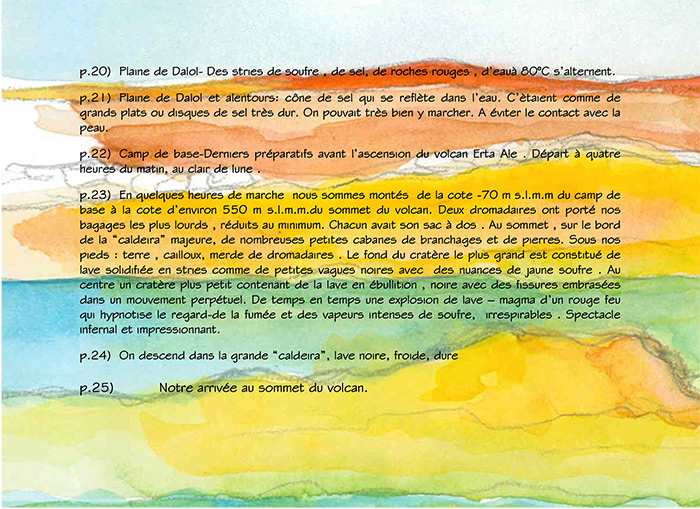 p.20) Plaine de Dalol- Des stries de soufre , de sel, de roches rouges , d'eauà 80°C s'alternent.
p.21) Plaine de Dalol et alentours: cône de sel qui se reflète dans l'eau. C'ètaient comme de
grands plats ou disques de sel très dur. On pouvait très bien y marcher. A éviter le contact avec la
peau.
p.22) Camp de base-Derniers préparatifs avant l'ascension du volcan Erta Ale . Départ à quatre
heures du matin, au clair de lune .
p.23) En quelques heures de marche nous sommes montés de la cote -70 m s.l.m.m du camp de
base à la cote d'environ 550 m s.l.m.m.du sommet du volcan. Deux dromadaires ont porté nos
bagages les plus lourds , réduits au minimum. Chacun avait son sac à dos . Au sommet , sur le bord
de la "caldeira" majeure, de nombreuses petites cabanes de branchages et de pierres. Sous nos
pieds : terre , cailloux, merde de dromadaires . Le fond du cratère le plus grand est constitué de
lave solidifiée en stries comme de petites vagues noires avec des nuances de jaune soufre . Au
centre un cratère plus petit contenant de la lave en ébullition , noire avec des fissures embrasées
dans un mouvement perpétuel. De temps en temps une explosion de lave – magma d'un rouge feu
qui hypnotise le regard-de la fumée et des vapeurs intenses de soufre, irrespirables . Spectacle
infernal et impressionnant.
p.24) On descend dans la grande "caldeira", lave noire, froide, dure
p.25) Notre arrivée au sommet du volcan.